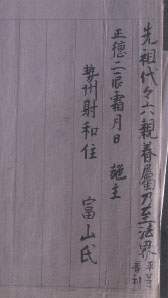 先祖代々六親眷屬乃至法界平等
普利
正徳二辰霜月日 施主
勢州射和住 富山氏